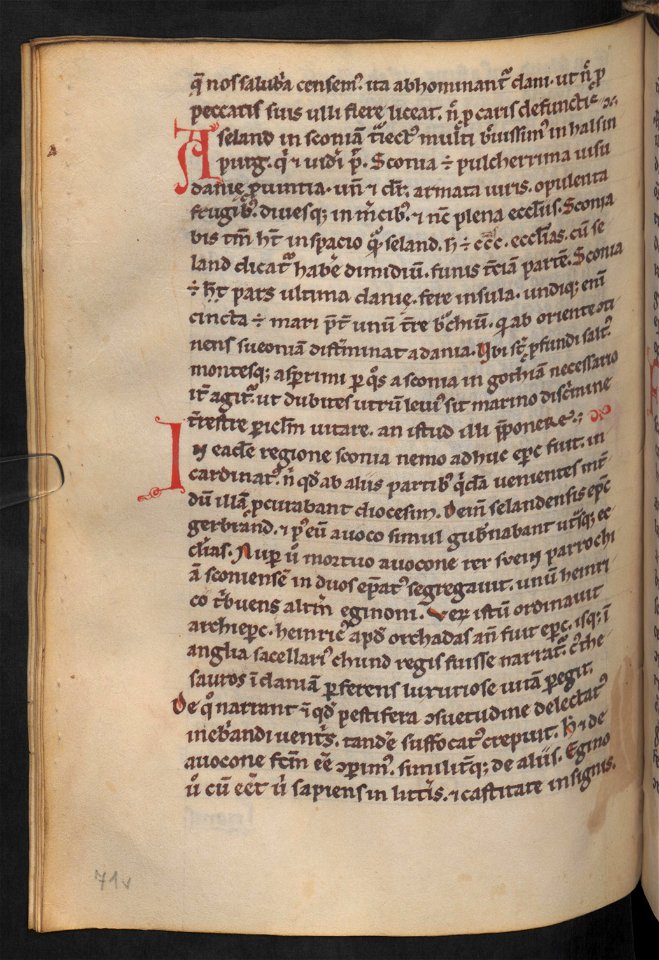 q̄ nos salub̃a censem᷒. ita abhominant᷑ dani. ut ñ p̱
peccatis suis ulli flere liceat. ñ p̱ caris defunctis
A seland in sconiā t̾iect᷒ multi b̾uissim᷒ in halsin
purg. q̾ ⁊ uid̾i p̄. Sconia ÷ pulcherrima uisu
danię ꝓuintia. uñ ⁊ dr̃. armata uiris. opulenta
frugib᷒. diuesq; in m̃cib᷒. ⁊ nc̄ plena ecclīis. Sconia
bis tm̄ ht̄ in spacio qͦ seland. h̄ ÷ ccc. ecclīas. cū se
land dicat᷑ habe᷑ dimidiū. funis t̾ciam partē. Sconia
÷ h̄t pars ultima danię. fere insula. undiq; eni᷑
cincta ÷ mari p̄t̾ unū t̾re b̾chiū. qͦ ab oriente ɔti
nens sueoniā dist̾minat a dania. Ubi st̄ ꝓfundi salt᷒
montesq; asp̱rimi p̱ qͦs a sconia in gothiā necessario
it̾ agit᷑. ut dubites utrū leui᷒ sit marino disc̾mine
t̾restre p̱iclm̄ uitare. an istud illi p̄ponere.
In eadē regione sconia nemo adhuc ep̄c fuit. in
cardinat᷒. ñ qd̄ ab aliis partib᷒ qͥda uenientes int̾
dū illā ꝓcurabant diocesim. Dein̄ selandensis ep̄c
gerbrand. ⁊ p᷒ eū auoco simul gub̾nabant ut̾sq; ec
clīas. Nup̱ ū mortuo auocone rex svein parrochi
ā sconiensē in duos ep̄at᷒ segregauit. unū heinri
co t̾buens alt̾m eginoni. Ver istū ordinauit
archiep̄c. heinric᷒ apd̄ orchadas an̄ fuit ep̄c. isq; ī
anglia sacellari᷒ chund regis fuisse narrat᷑. c᷒ the
sauros ī daniā p̱ferens luxuriose uitā p̱egit.
De qͦ narrant ī qd̄ pestifera ɔsuetudine delectat᷒
inebͥandi uentͥs. tandē suffocat᷒ crepuit. h̄ ⁊ de
auocone fct̄m eē ɔp̱im᷒. similit̾q; de aliis. Egino
ū cū eēt uͥ sapiens in litt̾is. ⁊ castitate insignis.
71v